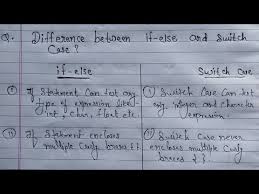 Q. Difference between if-else and Switch
Case?
if-else
Switch Case
① If Statement Can test any
type of expression like
int, Char, float etc
① Switch Case Can test
only integer and character
expression
② If Statement encloses
multiple Curly braces { }.
② Switch Case never
encloses multiple Curly
braces { }.